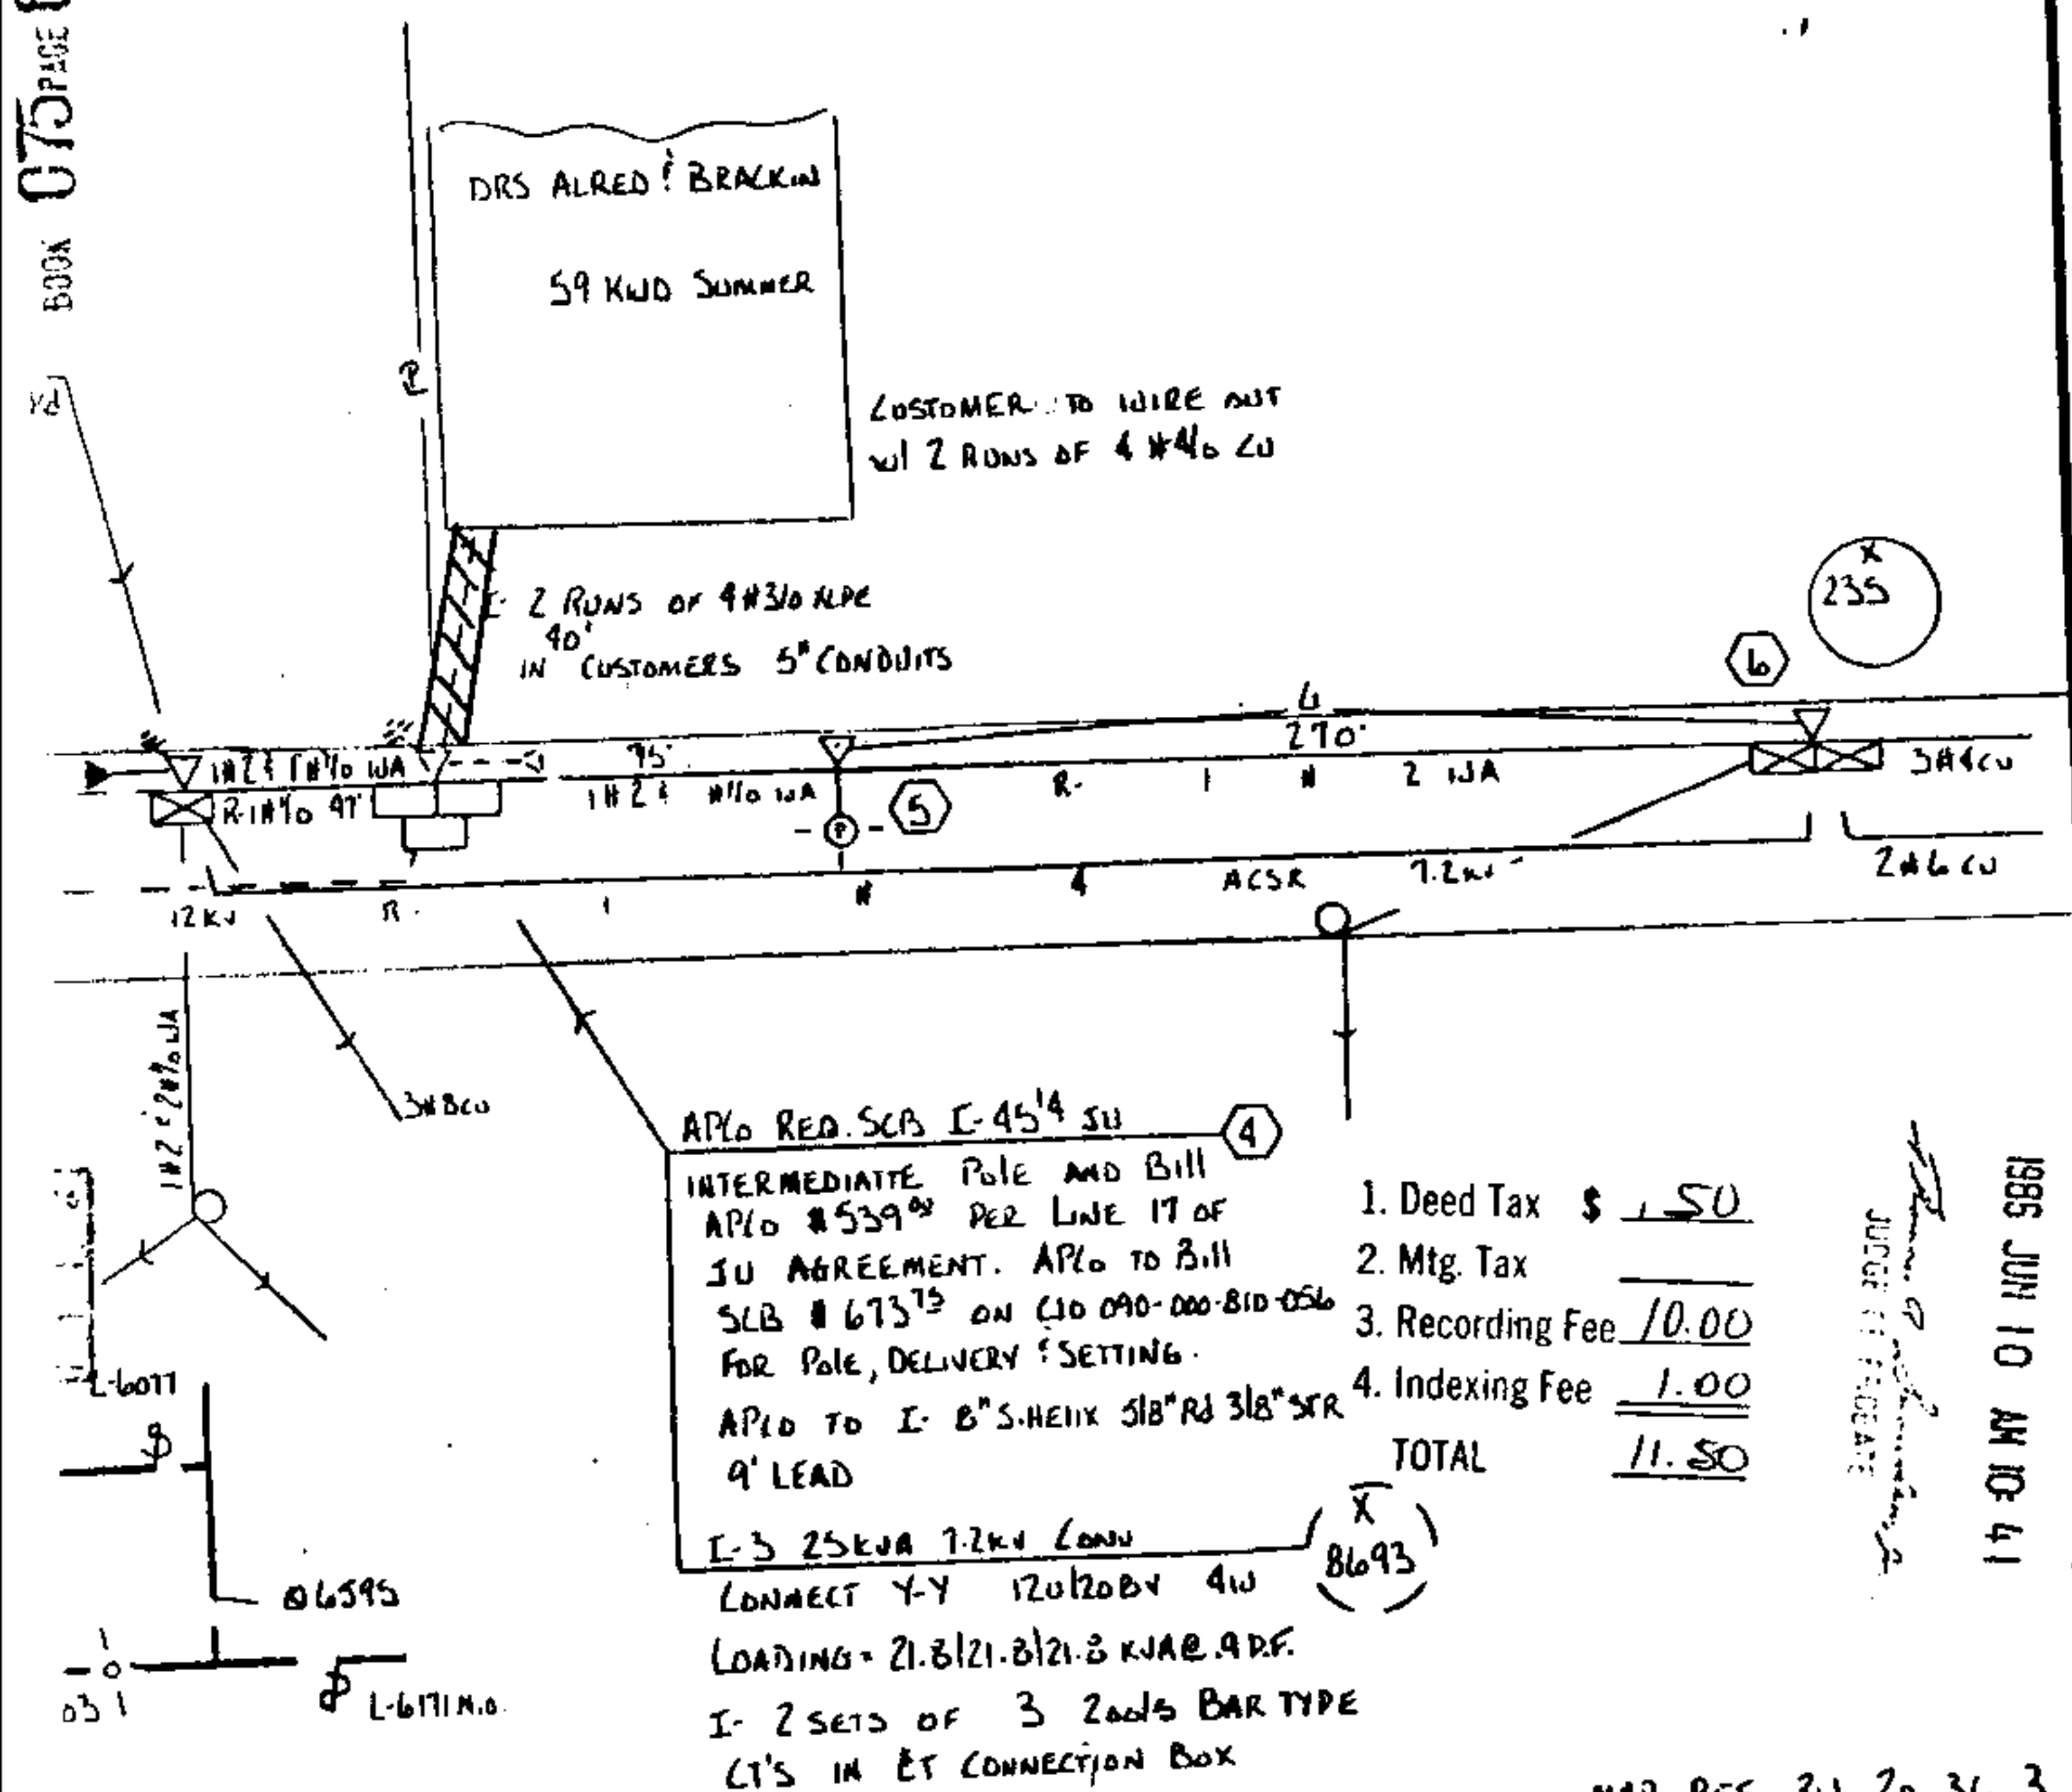 BOOK 075 PAGE
DRS ALRED & BRACKIN
59 KWD SUMMER
CUSTOMER TO WIRE OUT
w/ 2 RUNS OF 4 #4/0 CU
I- 2 RUNS OF 4#3/0 XLPE
40'
IN CUSTOMERS 5" CONDUITS
X
235
6
1#2 & 1#1/0 WA
75'
G
270'
3#4CU
R-1#1/0 47'
1#2 & #1/0 WA
5
R- 1 # 2 WA
P
12KV
R- 1 # 4 ACSR 7.2KV
2#6 CU
1#2 & 2#1/0 WA
3#8CU
APCo REQ. SCB I-45'4 JU
4
INTERMEDIATTE POLE AND BILL
APCO #539 PER LINE 17 OF
JU AGREEMENT. APCo TO BILL
SCB # 673 75 ON CJO 090-000-810-056
FOR POLE, DELIVERY & SETTING.
APCO TO I- 8" S.HELIX 5/8" Rd 3/8" STR
9' LEAD
I-3 25KVA 7.2KV CONV
X
8693
CONNECT Y-Y 120/208V 4W
LOADING = 21.8/21.8/21.8 KVA@.9 P.F.
I- 2 SETS OF 3 200/5 BAR TYPE
CT'S IN CT CONNECTION BOX
1. Deed Tax $ .50
2. Mtg. Tax
3. Recording Fee 10.00
4. Indexing Fee 1.00
TOTAL 11.50
1986 JUN 10 AM 10:41
JUDGE OF PROBATE
L-6077
06595
03
L-6171 N.O.
MAP REF